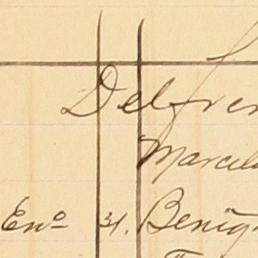 Delfren
Marcel
En⁰ 31. Benig